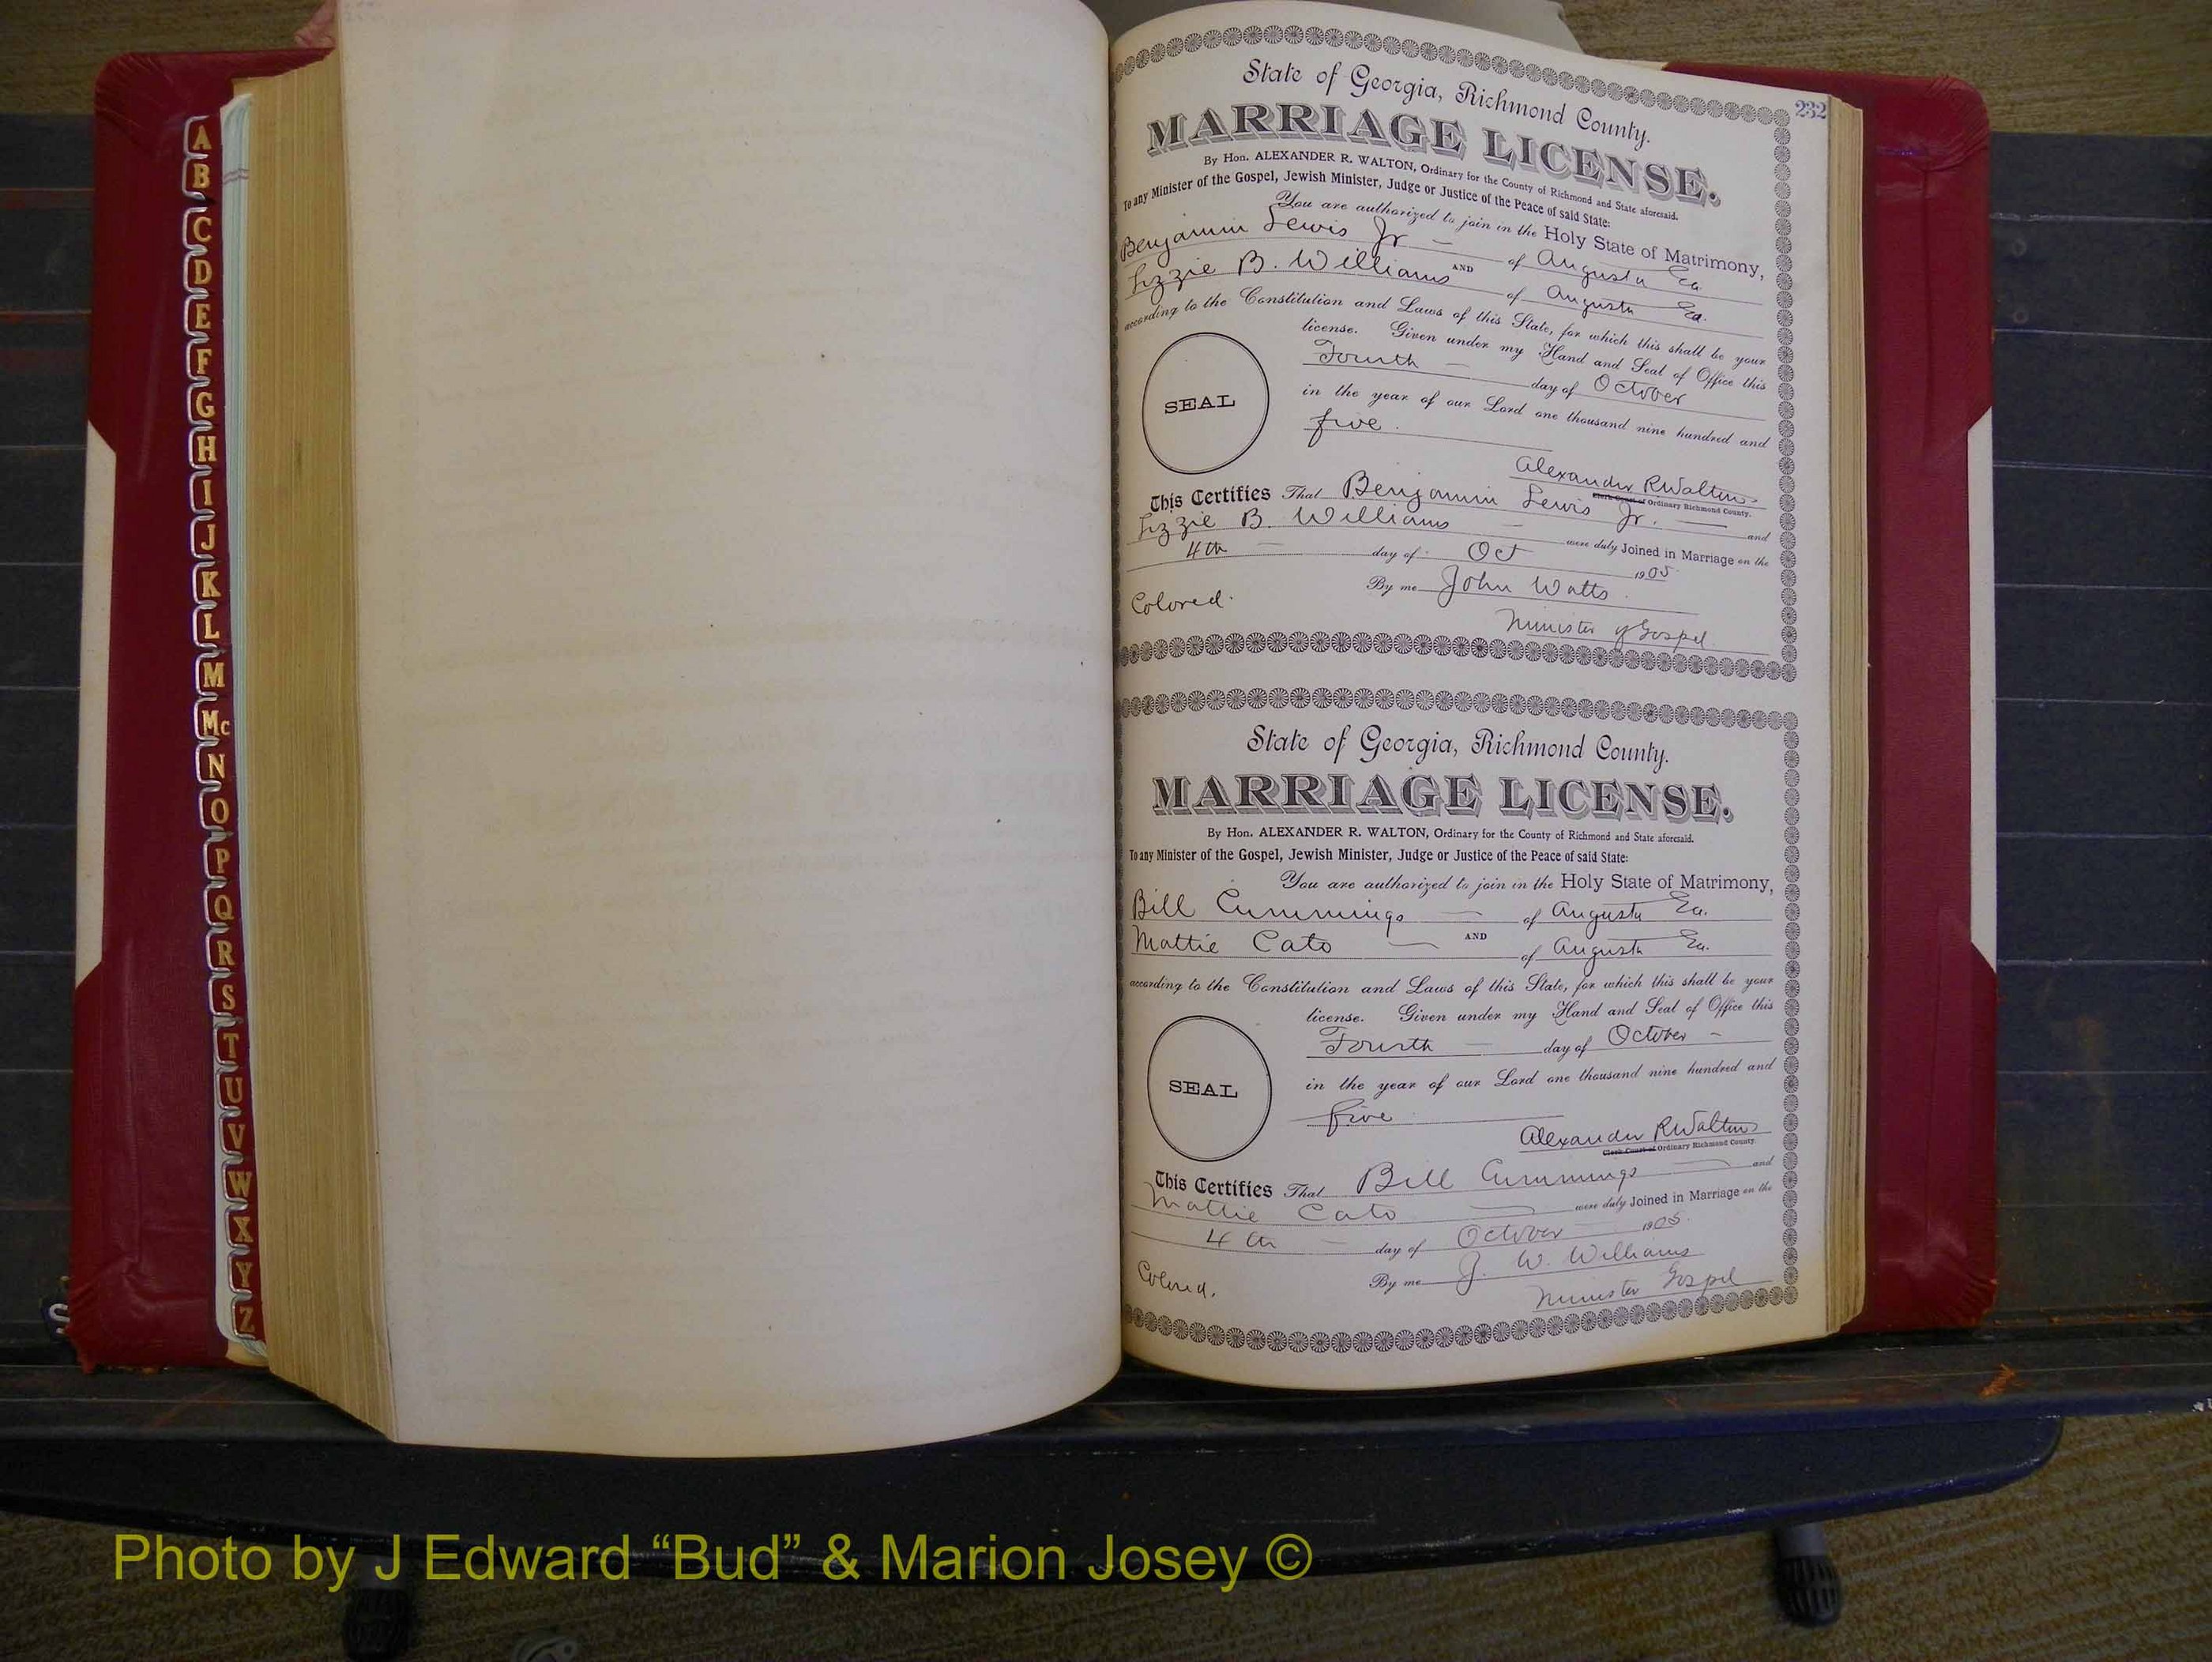 A
B
C
D
E
F
G
H
I
J
K
L
M
Mc
N
O
P
Q
R
S
T
U
V
W
X
Y
Z
232
State of Georgia, Richmond County.
MARRIAGE LICENSE.
By Hon. ALEXANDER R. WALTON, Ordinary for the County of Richmond and State aforesaid.
To any Minister of the Gospel, Jewish Minister, Judge or Justice of the Peace of said State:
You are authorized to join in the Holy State of Matrimony,
Benjamin Lewis Jr of Augusta Ga
AND
Lizzie B. Williams of Augusta Ga.
according to the Constitution and Laws of this State, for which this shall be your
license. Given under my Hand and Seal of Office this
Fourth day of October
in the year of our Lord one thousand nine hundred and
five.
SEAL
Alexander R Walton
Clerk Court of Ordinary Richmond County.
This Certifies That Benjamin Lewis Jr. and
Lizzie B. Williams were duly Joined in Marriage on the
4th day of Oct 1905
By me John Watts
Colored.
Minister of Gospel.
State of Georgia, Richmond County.
MARRIAGE LICENSE.
By Hon. ALEXANDER R. WALTON, Ordinary for the County of Richmond and State aforesaid.
To any Minister of the Gospel, Jewish Minister, Judge or Justice of the Peace of said State:
You are authorized to join in the Holy State of Matrimony,
Bill Cummings of Augusta Ga.
AND
Mattie Cato of Augusta Ga.
according to the Constitution and Laws of this State, for which this shall be your
license. Given under my Hand and Seal of Office this
Fourth day of October
in the year of our Lord one thousand nine hundred and
five
SEAL
Alexander R Walton
Clerk Court of Ordinary Richmond County.
This Certifies That Bill Cummings and
Mattie Cato were duly Joined in Marriage on the
4th day of October 1905
By me J. W. Williams
Colored.
Minister Gospel
Photo by J Edward “Bud” & Marion Josey ©